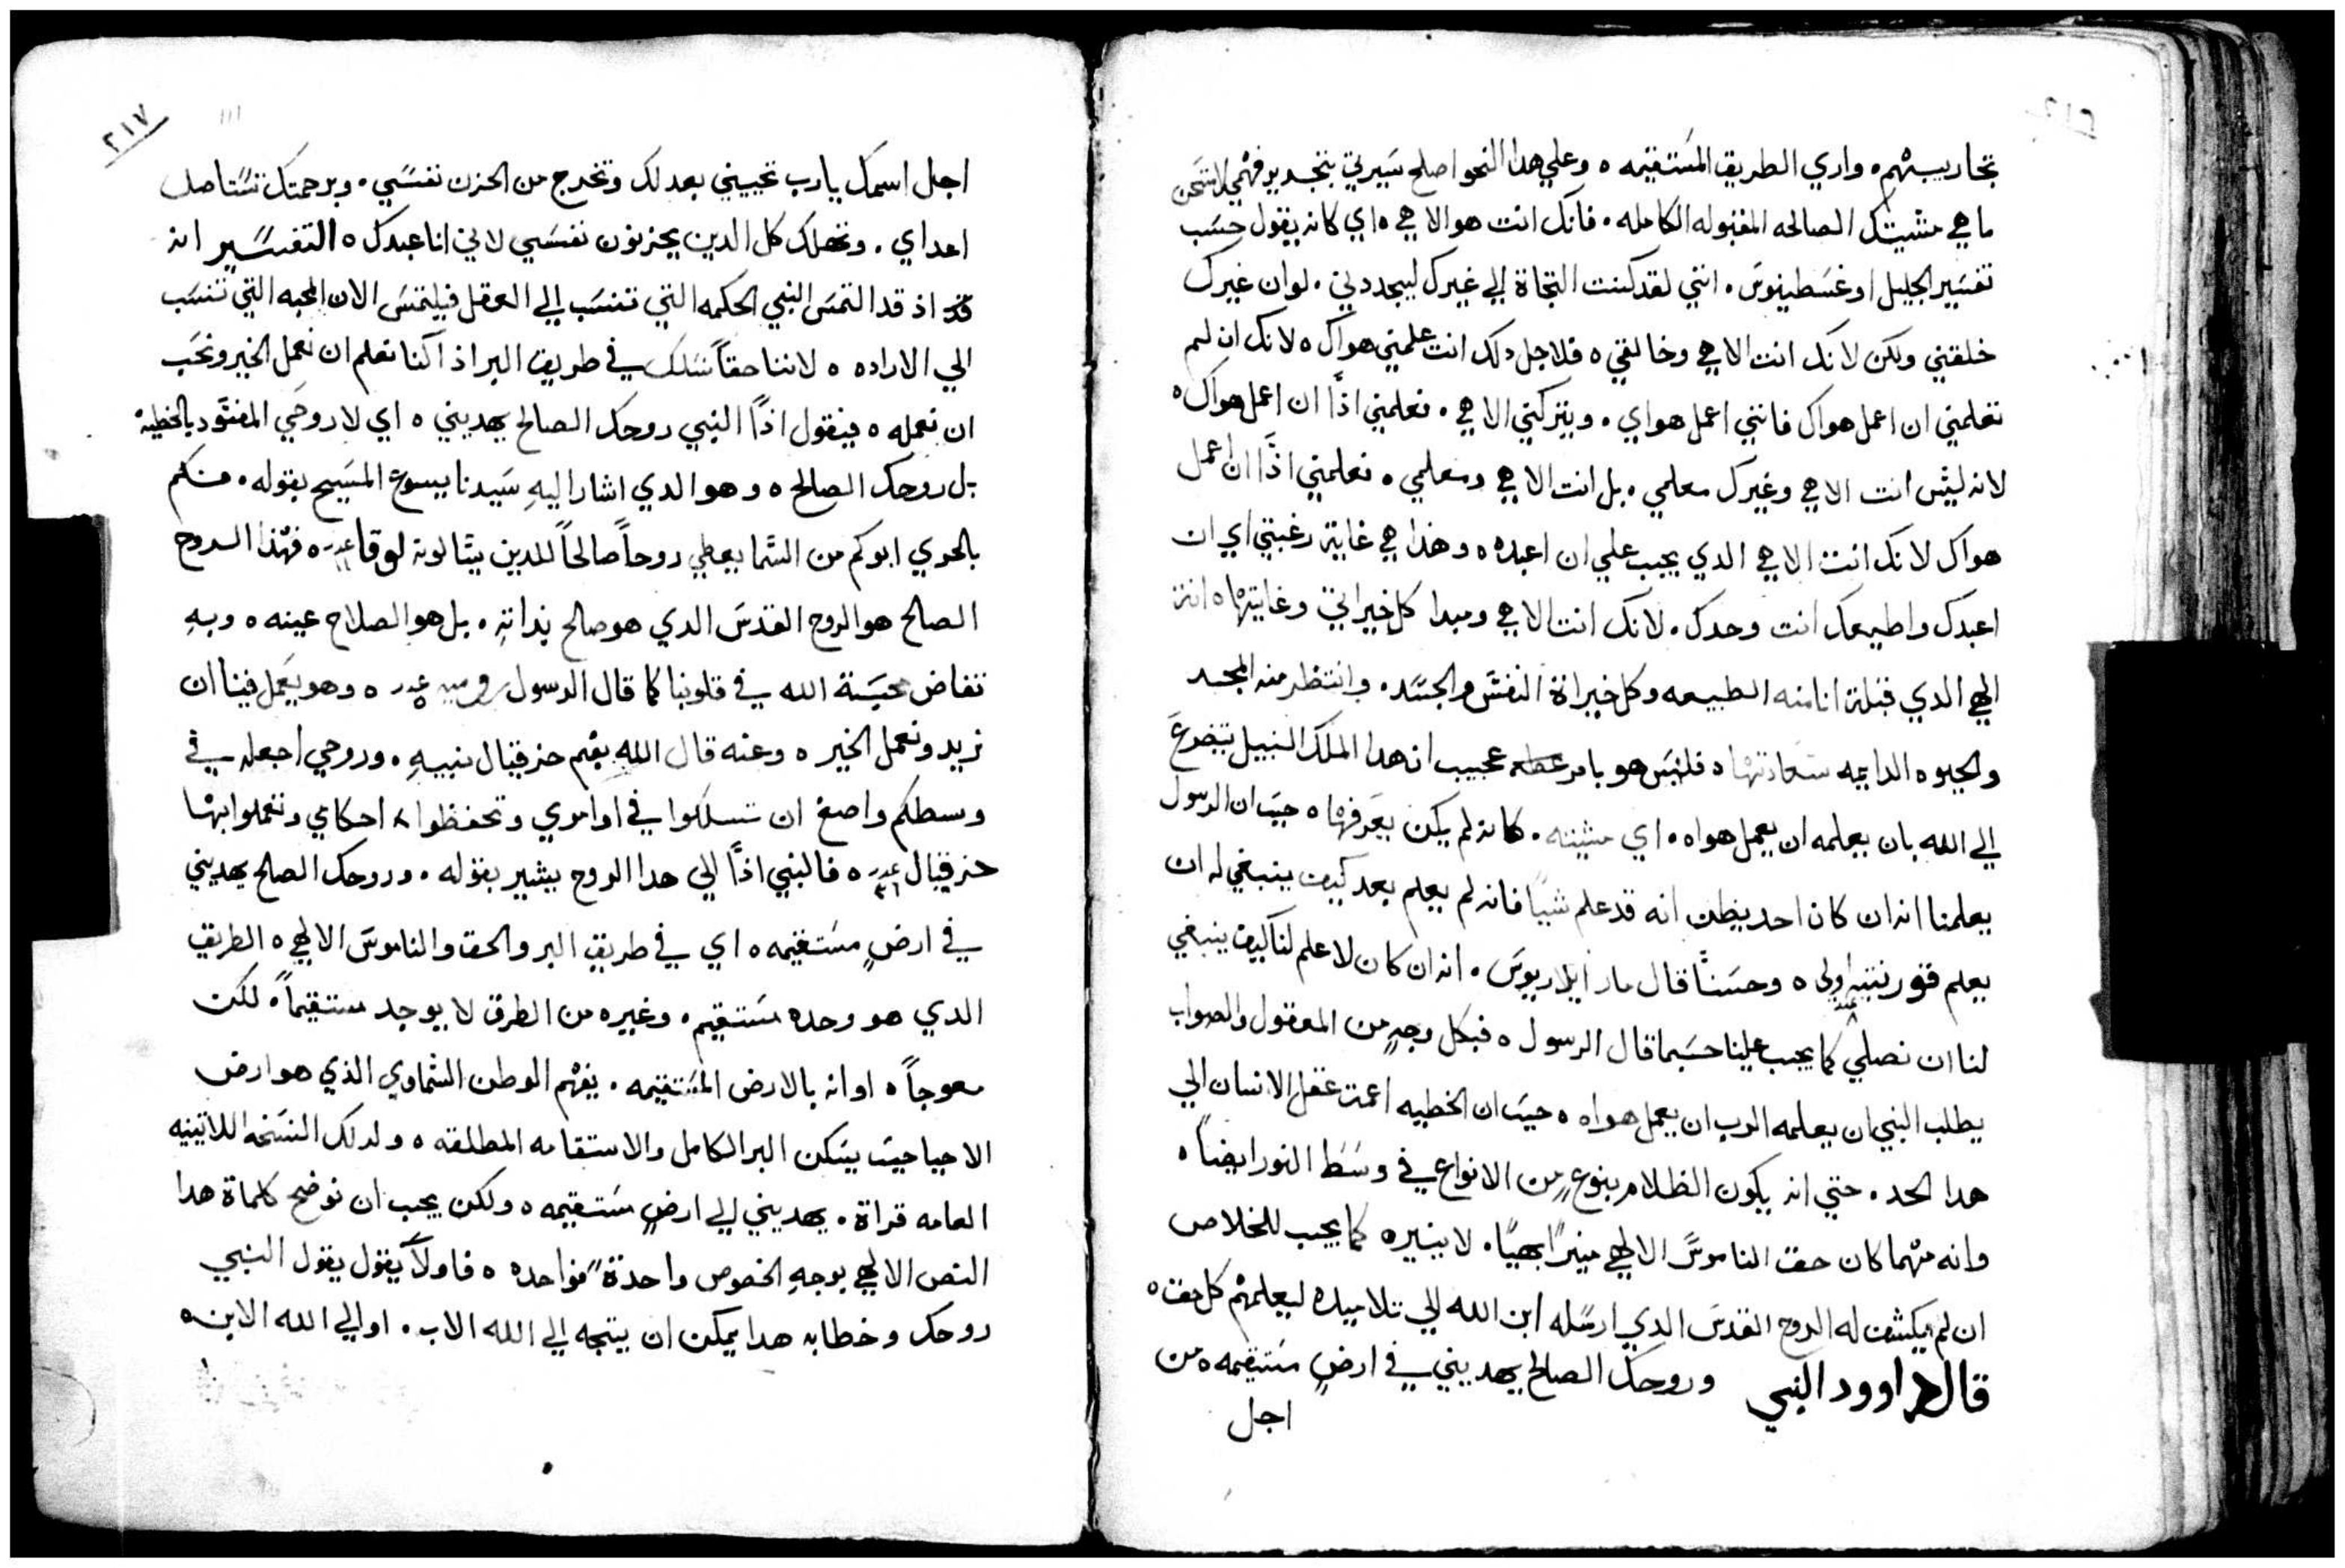 تجاريبهم ٥ واري الطريق المستقيمه ٥ وعلي هدا النحو اصلح سيرتي بتجديد فهمي لامتحن
ما هي مشيتك الصالحه المقبوله الكامله . فانك انت هو الاهي ٥ اي كانه يقول حسب
تفسير الجليل اوغسطينوس . انني لقد كنت التجاة الي غيرك ليجددني . لو ان غيرك
خلقني ولكن لانك انت الاهي وخالقي ٥ فلاجل دلك انت علمني هواك ٥ لانك ان لم
تعلمني ان اعمل هواك فانني اعمل هواي . ويتركني الاهي . فعلمني اذًا ان اعمل هواك ٥
لانه ليس انت الاهي وغيرك معلمي . بل انت الاهي ومعلمي . فعلمني اذًا ان اعمل
هواك لانك انت الاهي الدي يجب علي ان اعبده ٥ وهذا هي غاية رغبتي اي ان
اعبدك واطيعك انت وحدك . لانك انت الاهي ومبدا كل خيراتي وغايتها ٥ انت
الهي الدي قبلة انا منه الطبيعه وكل خيراة النفس والجسد . وانتظر منه المجد
والحيوه الدايمه سعادتها ٥ فليس هو بامر عجيب ان هدا الملك النبيل يتضرع
الي الله بان يعلمه ان يعمل هواه . اي مشيته . كانه لم يكن يعرفها ٥ حيت ان الرسول
يعلمنا انه ان كان احد يظن انه قد علم شيًا فانه لم يعلم بعد كيف ينبغي له ان
يعلم قورنتيه اولي ٥ وحسنًا قال مار ايلاريوس . انه ان كان لا علم لنا كيف ينبغي
لنا ان نصلي كما يجب علينا حسبما قال الرسول ٥ فبكل وجهٍ من المعقول والصواب
يطلب النبي ان يعلمه الرب ان يعمل هواه ٥ حيت ان الخطيه اعمت عقل الانسان الي
هدا الحد . حتي انه يكون الظلام بنوعٍ من الانواع في وسط النور ايضًا ٥
وانه مهما كان حق الناموس الالهي منيرًا بهيًا . لا ينيره كما يجب للخلاص
ان لم يكشف له الروح القدس الدي ارسله ابن الله الي تلاميده ليعلمهم كل حق ٥
قال داوود النبي وروحك الصالح يهديني في ارضٍ مستقيمه ٥ من
اجل
٢١٧
اجل اسمك يا رب تحييني بعدلك وتخرج من الحزن نفسي . وبرحمتك تستاصل
اعداي . وتهلك كل الدين يحزنون نفسي لاني انا عبدك ٥ التفسير انه
قد اذ قد التمس النبي الحكمه التي تنسب الي العقل فيلتمس الان المحبه التي تنسب
الي الاراده ٥ لاننا حقًا نسلك في طريق البر اذ اكنا نعلم ان نعمل الخير ونحب
ان نعمله ٥ فيقول اذًا النبي روحك الصالح يهديني ٥ اي لا روحي المفسود بالخطية
بل روحك الصالح ٥ وهو الدي اشار اليهِ سيدنا يسوع المسيح بقوله . فكم
بالحري ابوكم من السما يعطي روحًا صالحًا للدين يسالونه لوقا عدد ١١ ٥ فهذا الروح
الصالح هو الروح القدس الدي هو صالح بذاتهِ . بل هو الصلاح عينه ٥ وبهِ
تفاض محبة الله في قلوبنا كما قال الرسول روميه عدد ٥ ٥ وهو يعمل فينا ان
نريد ونعمل الخير ٥ وعنه قال الله بفم حزقيال نبيهِ . وروحي اجعله في
وسطكم واصنع ان تسلكوا في اوامري وتحفظوا احكامي وتعملوا بها
حزقيال عدد ٣٦ ٥ فالنبي اذًا الي هدا الروح يشير بقوله . وروحك الصالح يهديني
في ارضٍ مستقيمه ٥ اي في طريق البر والحق والناموس الالهي ٥ الطريق
الدي هو وحده مستقيم . وغيره من الطرق لا يوجد مستقيمًا . لكن
معوجًا ٥ او انه بالارض المستقيمه . يفهم الوطن السماوي الذي هو ارض
الاحيا حيت يسكن البر الكامل والاستقامه المطلقه ٥ ولدلك النسخه اللاتينيه
العامه قراة . يهديني الي ارضٍ مستقيمه ٥ ولكن يجب ان نوضح كلماة هدا
النص الالهي بوجهِ الخصوص واحدةً فواحده ٥ فاولًا يقول يقول النبي
روحك وخطابه هدا يمكن ان يتجه الي الله الاب . او الي الله الابن ٥